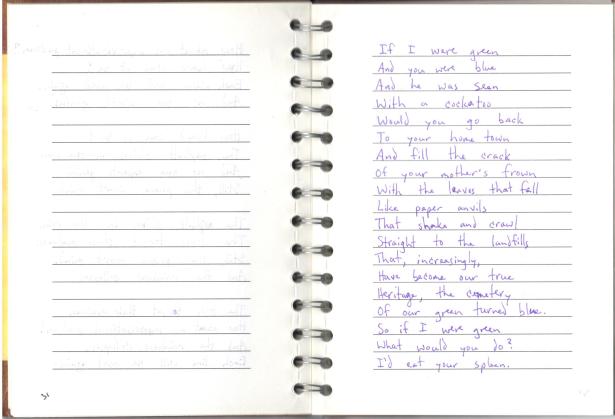 If I were green
And you were blue
And he was seen
With a cockatoo
Would you go back
To your home town
And fill the crack
Of your mother's frown
With the leaves that fall
Like paper anvils
That shake and crawl
Straight to the landfills
That, increasingly,
Have become our true
Heritage, the cemetery
Of our green turned blue.
So if I were green
What would you do?
I'd eat your spleen.